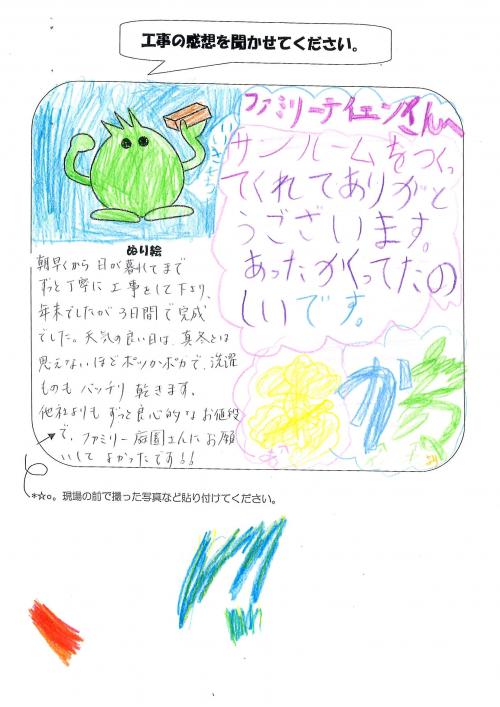 工事の感想を聞かせてください。
ファミリーテイエンさんへ
サンルームをつくっ
てくれてありがと
うございます。
あったかくってたの
しいです。
ぬり絵
朝早くから日が暮れてまで
ずっと丁寧に工事をして下さり、
年末でしたが3日間で完成
でした。天気の良い日は、真冬とは
思えないほどポッカポカで、洗濯
ものもバッチリ乾きます。
他社よりもずっと良心的なお値段
で、ファミリー庭園さんにお願
いしてよかったです!!
*☆○。現場の前で撮った写真など貼り付けてください。